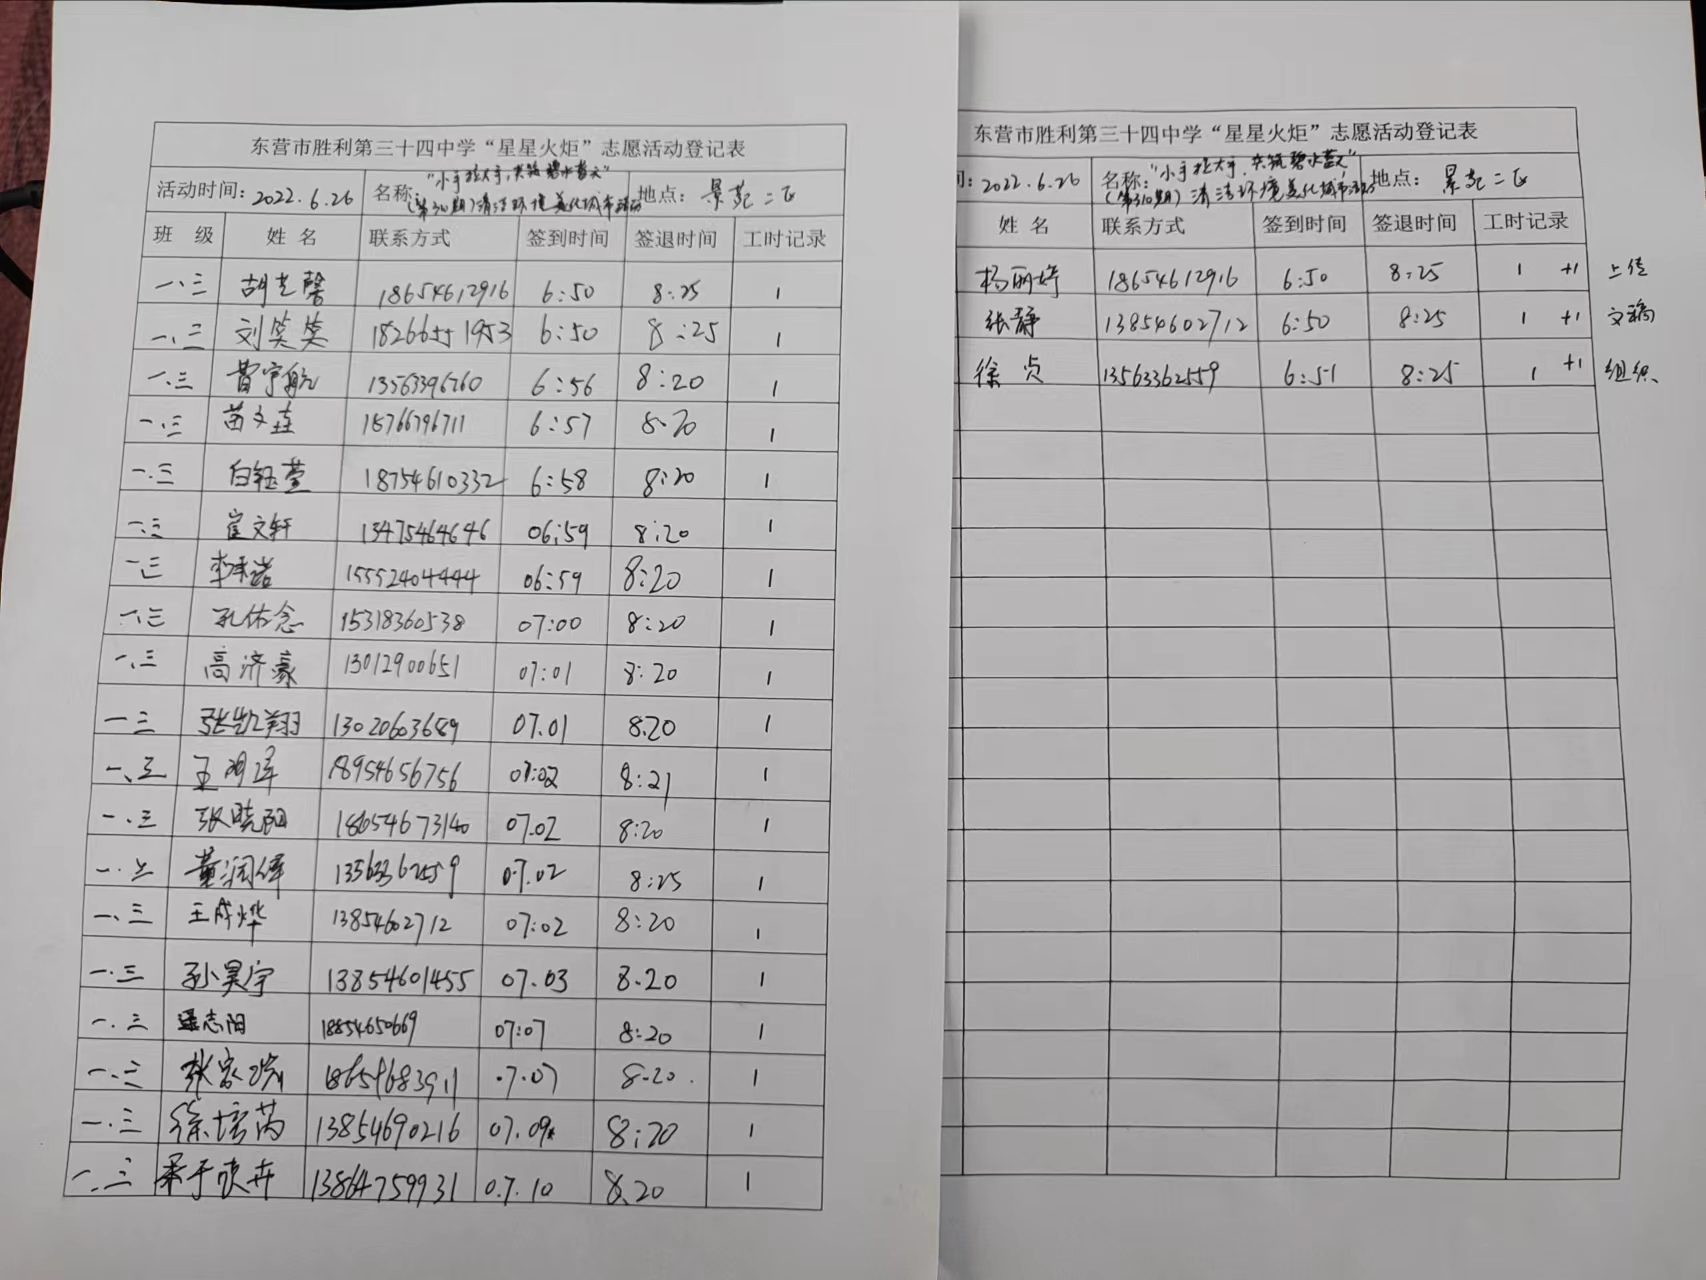 东营市胜利第三十四中学“星星火炬”志愿活动登记表
活动时间：2022.6.26 名称：“小手拉大手，共筑碧水蓝天”（第310期）清洁环境美化城市活动 地点：景苑二区
班 级 姓 名 联系方式 签到时间 签退时间 工时记录
一.三 胡艺馨 18654612916 6:50 8:25 1
一.三 刘笑笑 18266551953 6:50 8:25 1
一.三 曹宇航 13563396760 6:56 8:20 1
一.三 苗文 15766796711 6:57 8.20 1
一.三 白钰萱 18754610332 6:58 8:20 1
一.三 崔文轩 13475464646 06:59 8:20 1
一三 李承诺 15552404444 06:59 8:20 1
一.三 孔佑念 15318360538 07:00 8:20 1
一.三 高济豪 13012900651 07:01 8:20 1
一三 张凯翔 13020603689 07.01 8.20 1
一.三 王 18954656756 07:02 8:21 1
一.三 张晓阳 18654673140 07.02 8:20 1
一.三 董润泽 13563362559 07.02 8:25 1
一.三 王成烨 13854602712 07:02 8:20 1
一.三 孙昊宇 13854601455 07.03 8.20 1
一.三 志阳 18854650669 07:07 8:20 1
一.三 张家 18654683911 07.07 8.20. 1
一.三 徐培芮 13854690216 07.09 8:20 1
一.三 13864759931 07.10 8.20 1
东营市胜利第三十四中学“星星火炬”志愿活动登记表
间：2022.6.26 名称：“小手拉大手，共筑碧水蓝天”（第310期）清洁环境美化城市活动 地点：景苑二区
姓 名 联系方式 签到时间 签退时间 工时记录
杨丽婷 18654612916 6:50 8:25 1 +1 上传
张静 13854602712 6:50 8:25 1 +1 文稿
徐贞 13563362559 6:51 8:25 1 +1 组织